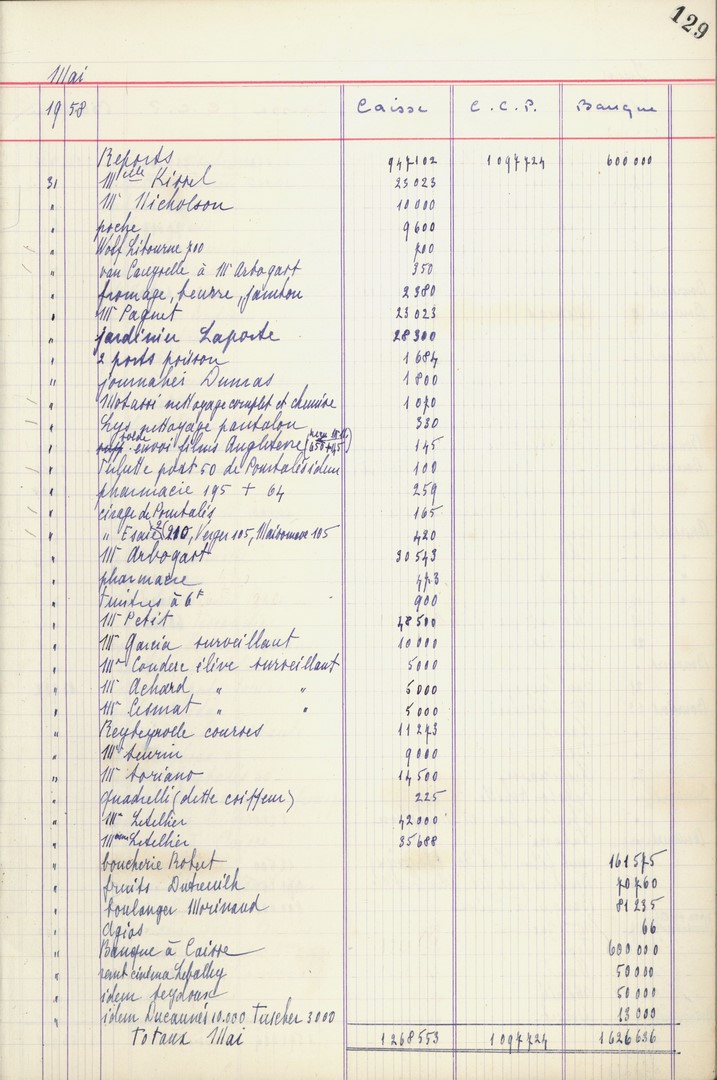 129
Mai
1958 Caisse C.C.P. Banque
Reports 947102 1097724 600000
31 Melle Kissel 23023
" Mr Nicholson 10000
" poche 9600
" Wolf Libourne 700 700
" van Caugrelle à Mr Arbogart 350
" fromage, beurre, jambon 2380
" Mr Paquet 23023
" jardinier Laporte 28300
" 2 ports poisson 1684
" journalier Dumas 1800
" nettoyage complet et chemise 1070
" Lys nettoyage pantalon 330
" envoi films Angleterre 145
" port 50 de Pourtalès idem 100
" pharmacie 195 + 64 259
" cirage de Pourtalès 165
" " 210, Verger 105, Maisonnave 105 420
" Mr Arbogart 30543
" pharmacie 473
" timbres à 6F 900
" Mr Petit 48500
" Mr Garcia surveillant 10000
" Mr Couderc élève surveillant 5000
" Mr Achard " " 6000
" Mr Cesmat " " 5000
" Reybeyrolle courses 11273
" Mr Seurin 9000
" Mr Soriano 14500
" Quadrelli (dette coiffeur) 225
" Mr Letellier 42000
" Mme Letellier 35688
" boucherie Robert 161575
" fruits Dutreuilh 70760
" boulanger Morinaud 81235
" Agios 66
" Banque à Caisse 600000
" cinéma Lebaudy 50000
" idem Seydoux 50000
" idem 10.000 Tuscher 3000 13000
Totaux Mai 1268553 1097724 1626636